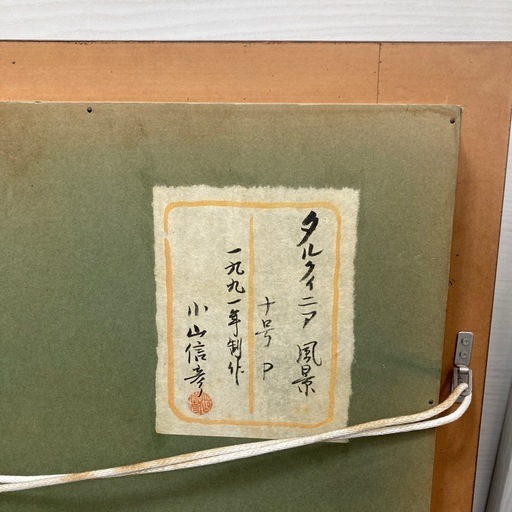 タルクィニア 風景
十号 P
一九九一年制作
小山信彦